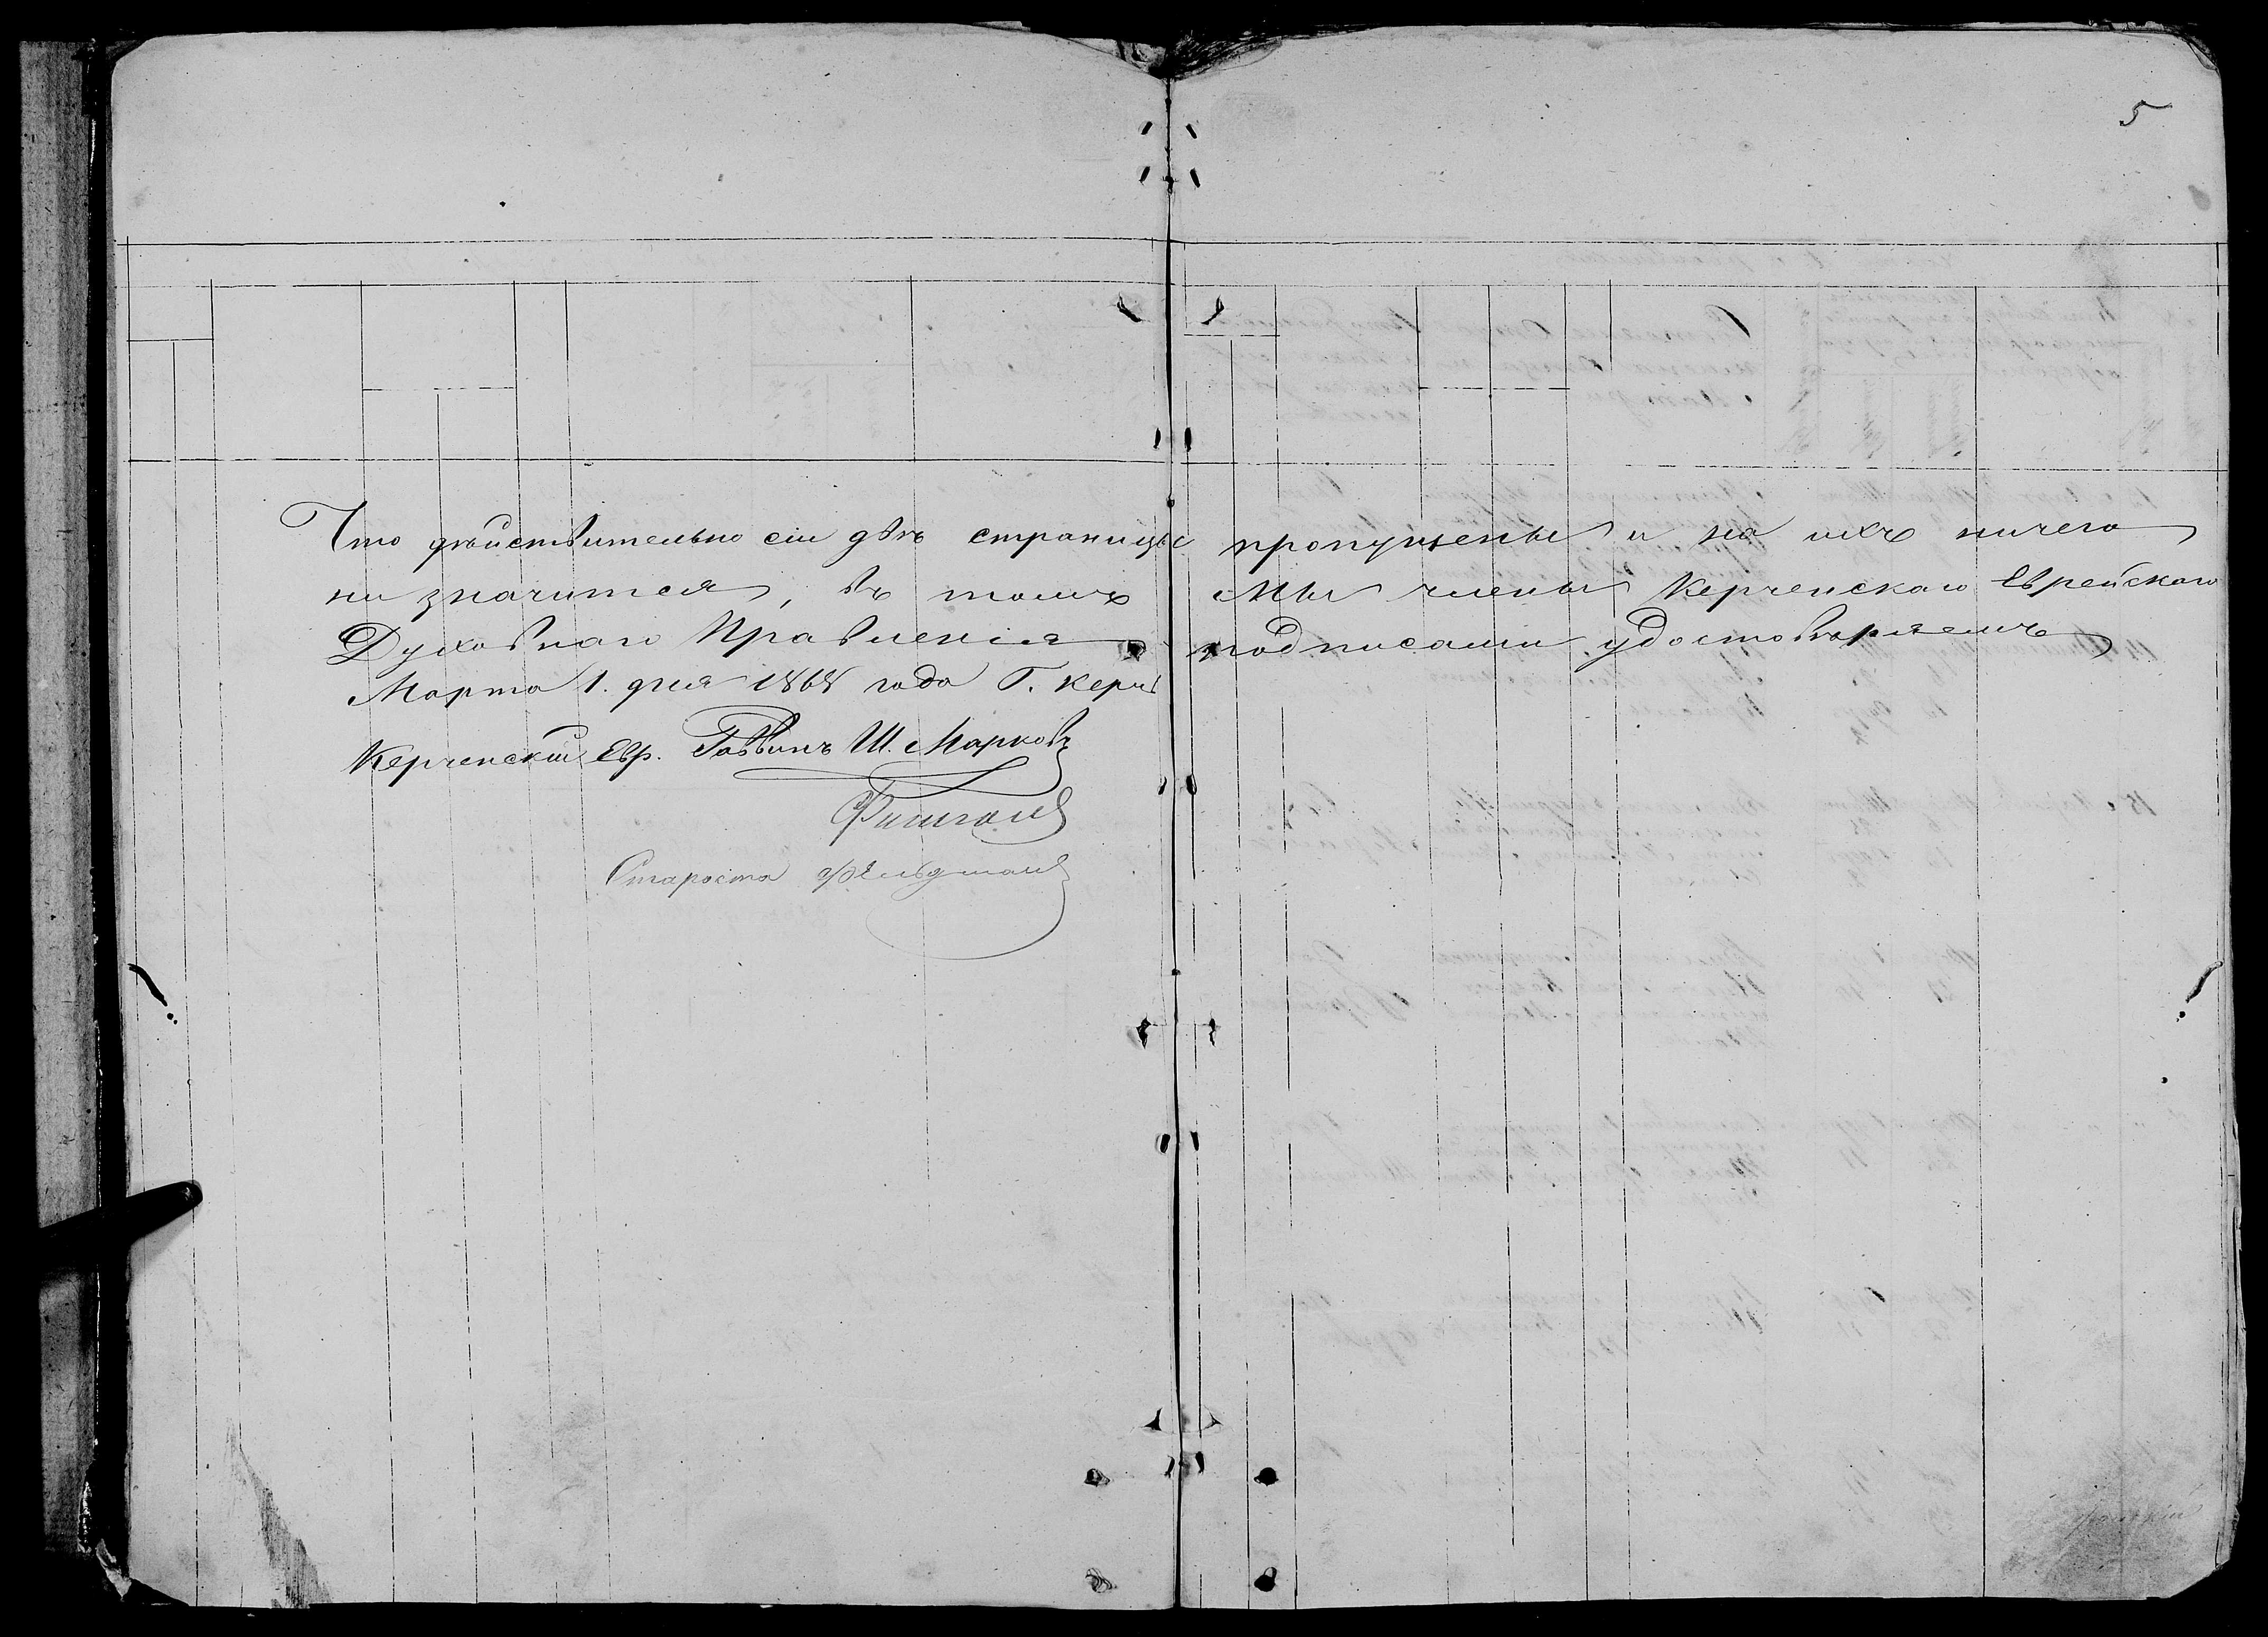 5
Что дѣйствительно сіи двѣ страницы пропущены и на ихъ ничего
ни значится, въ томъ мы члены Керченскаго Еврейскаго
Духовнаго Правленія подписами удостовѣряемъ
Марта 1. дня 1868 года Г. Керчь
Керченскій Евр. Раввинъ Ш. Марковъ
Староста Фельдман